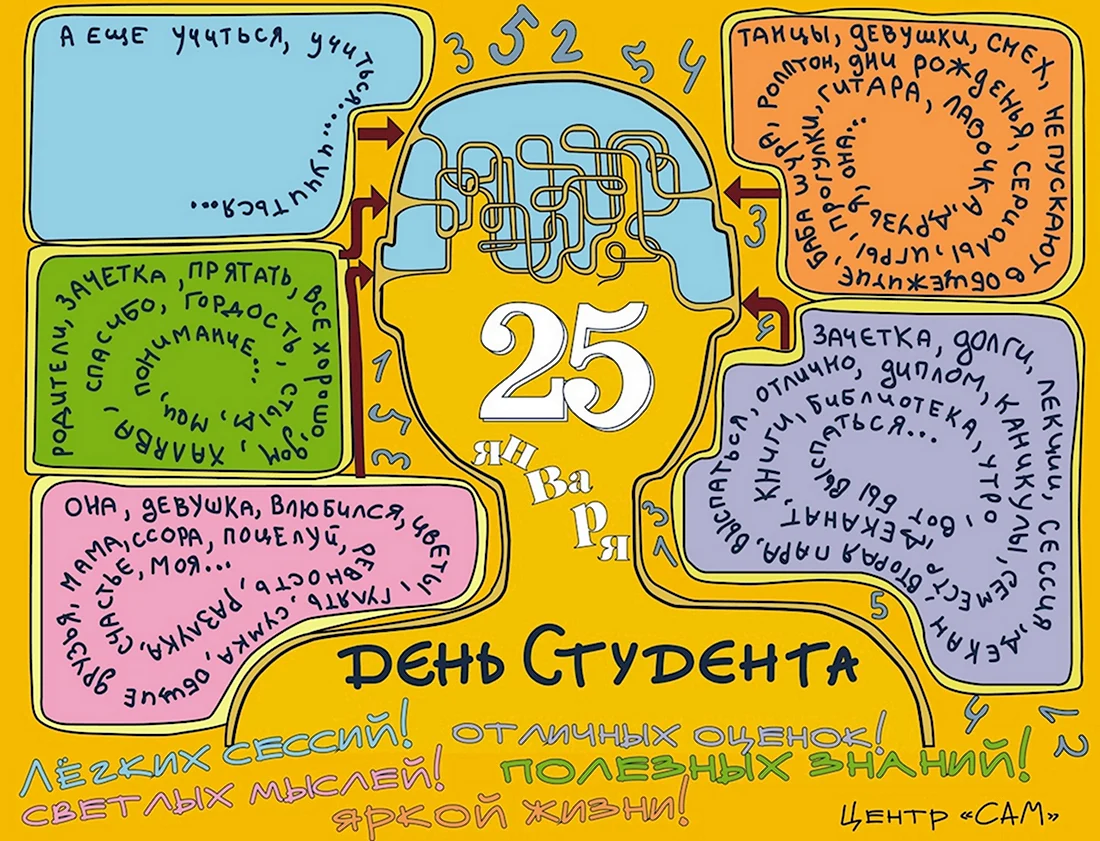 А ЕЩЕ УЧИТЬСЯ, УЧИТЬСЯ.... И УЧИТЬСЯ...
3 5 2 5 4
ТАНЦЫ, ДЕВУШКИ, СМЕХ, НЕ ПУСКАЮТ В ОБЩЕЖИТИЕ
БАБА ШУРА, РОЛЛТОН, ДНИ РОЖДЕНЬЯ, СЕРИАЛЫ, ИГРЫ, ПРОГУЛКИ, ГИТАРА, ЛАВОЧКА, ДРУЗЬЯ, ОНА...
3
РОДИТЕЛИ, ЗАЧЕТКА, ПРЯТАТЬ, ВСЕ ХОРОШО, ДОМ, ХАЛЯВА, СПАСИБО, ГОРДОСТЬ, СТЫД, МОИ, ПОНИМАНИЕ...
25
января
4
1
5
3
ЗАЧЕТКА, ДОЛГИ, ЛЕКЦИИ, СЕССИЯ, ДЕКАН, СЕМЕСТР, КАНИКУЛЫ, ДИПЛОМ, ОТЛИЧНО, ВЫСПАТЬСЯ, ВТОРАЯ ПАРА, ДЕКАНАТ, КНИГИ, БИБЛИОТЕКА, УТРО, ВОТ БЫ ВЫСПАТЬСЯ...
ОНА, ДЕВУШКА, ВЛЮБИЛСЯ, ЦВЕТЫ, ГУЛЯТЬ, СУМКА, ОБЩИЕ ДРУЗЬЯ, МАМА, ССОРА, ПОЦЕЛУЙ, РЕВНОСТЬ, РАЗЛУКА, СЧАСТЬЕ, МОЯ...
3
1
5
ДЕНЬ СТУДЕНТА
4
2
ЛЁГКИХ СЕССИЙ!
ОТЛИЧНЫХ ОЦЕНОК!
СВЕТЛЫХ МЫСЛЕЙ!
ПОЛЕЗНЫХ ЗНАНИЙ!
ЯРКОЙ ЖИЗНИ!
ЦЕНТР «САМ»